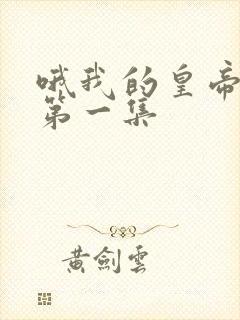 哦我的皇帝
第一集
黄剑雲